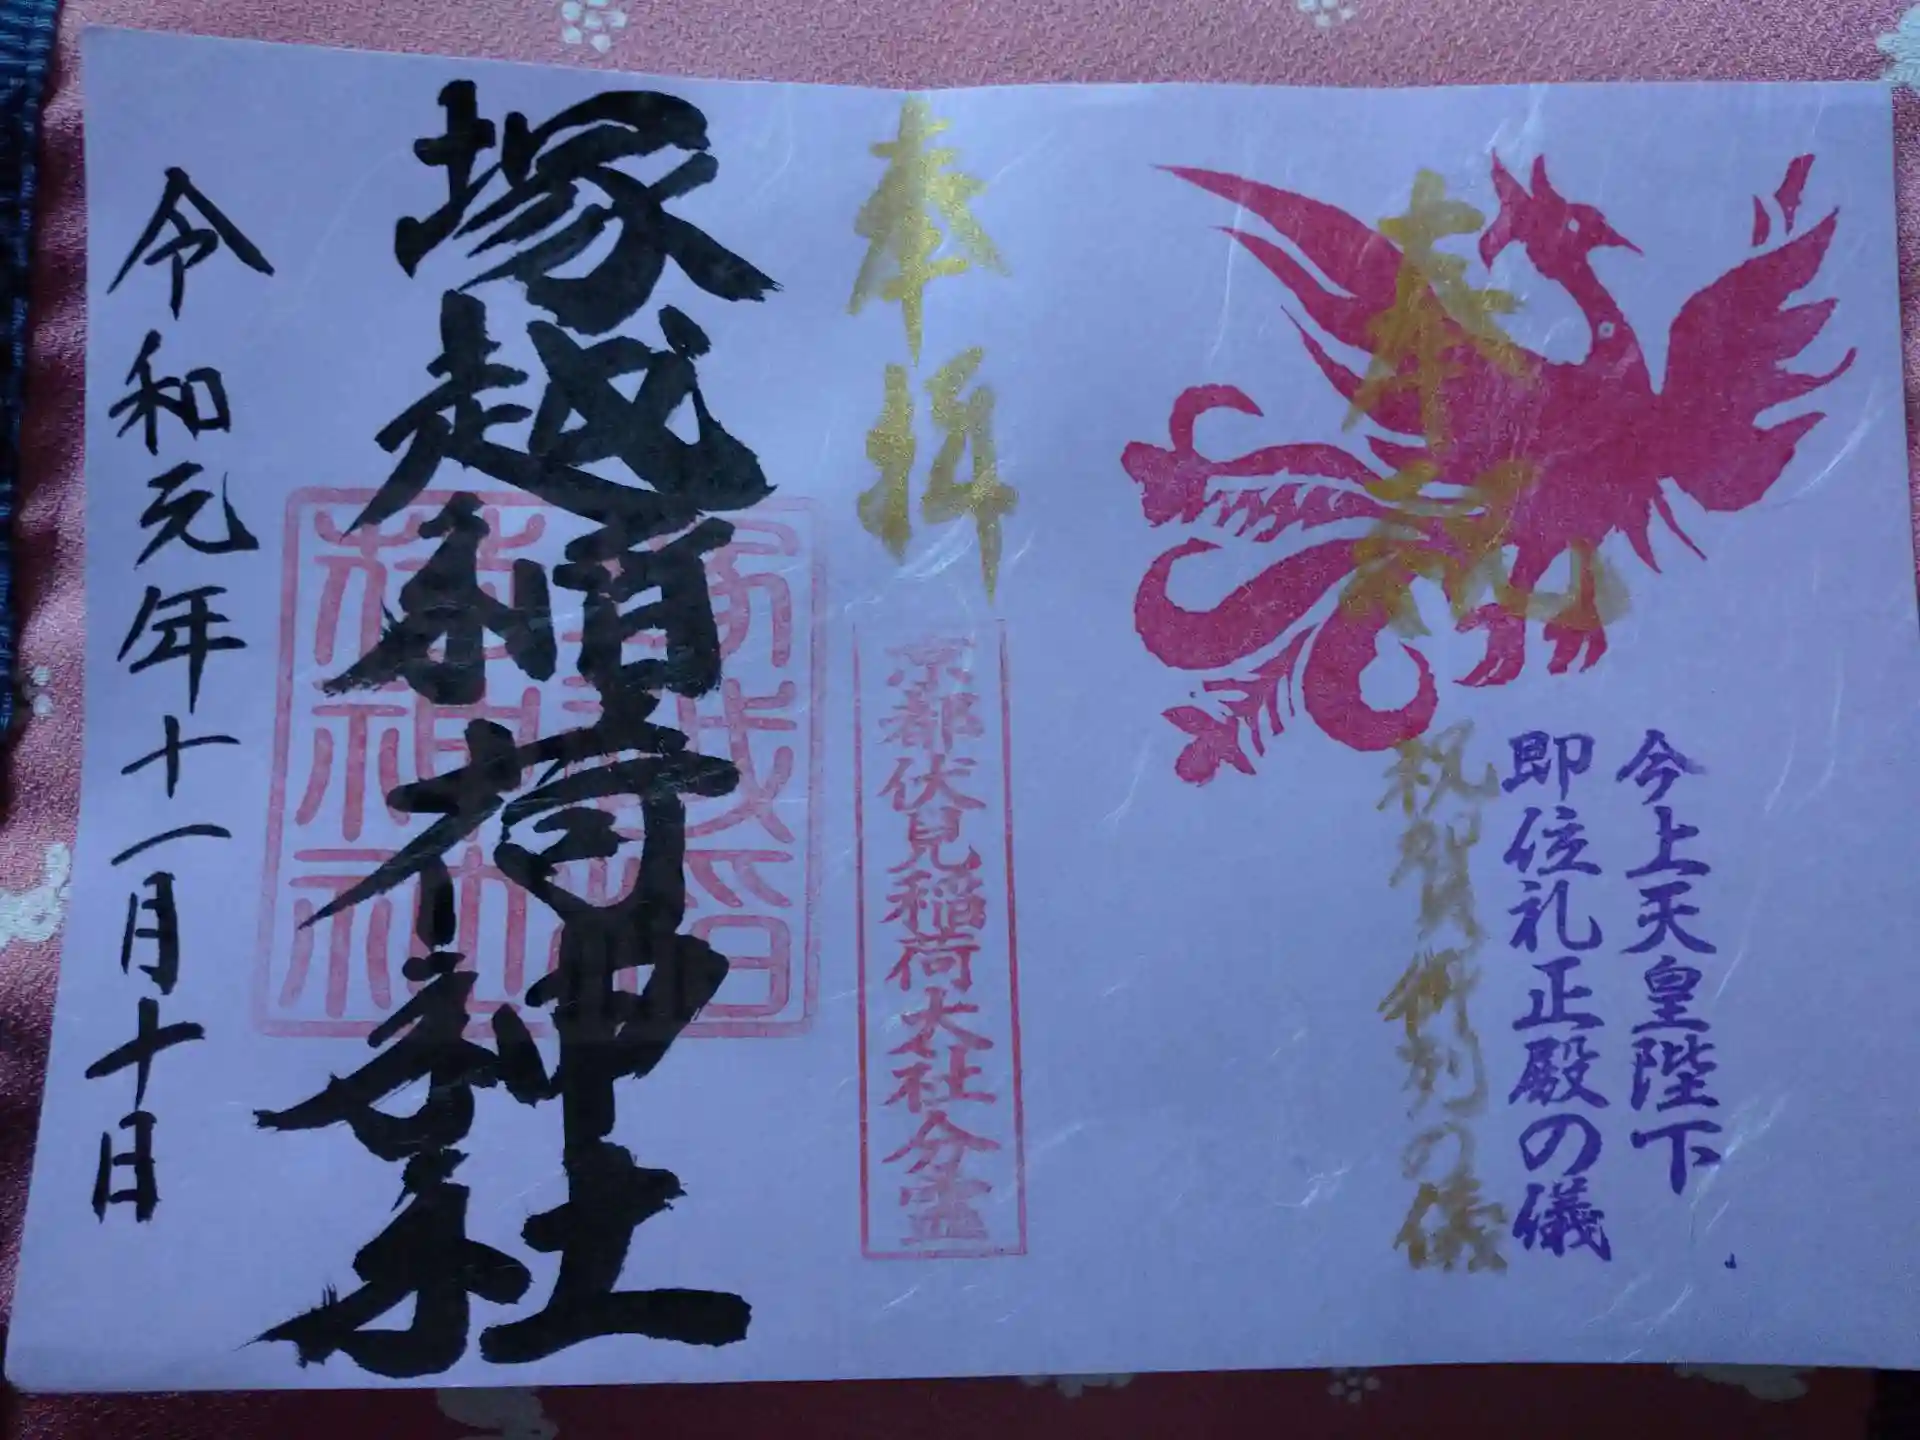 今上天皇陛下
即位礼正殿の儀
奉祝
祝賀御列の儀
奉拝
京都伏見稲荷大社分霊
塚越稲荷神社
令和元年十一月十日